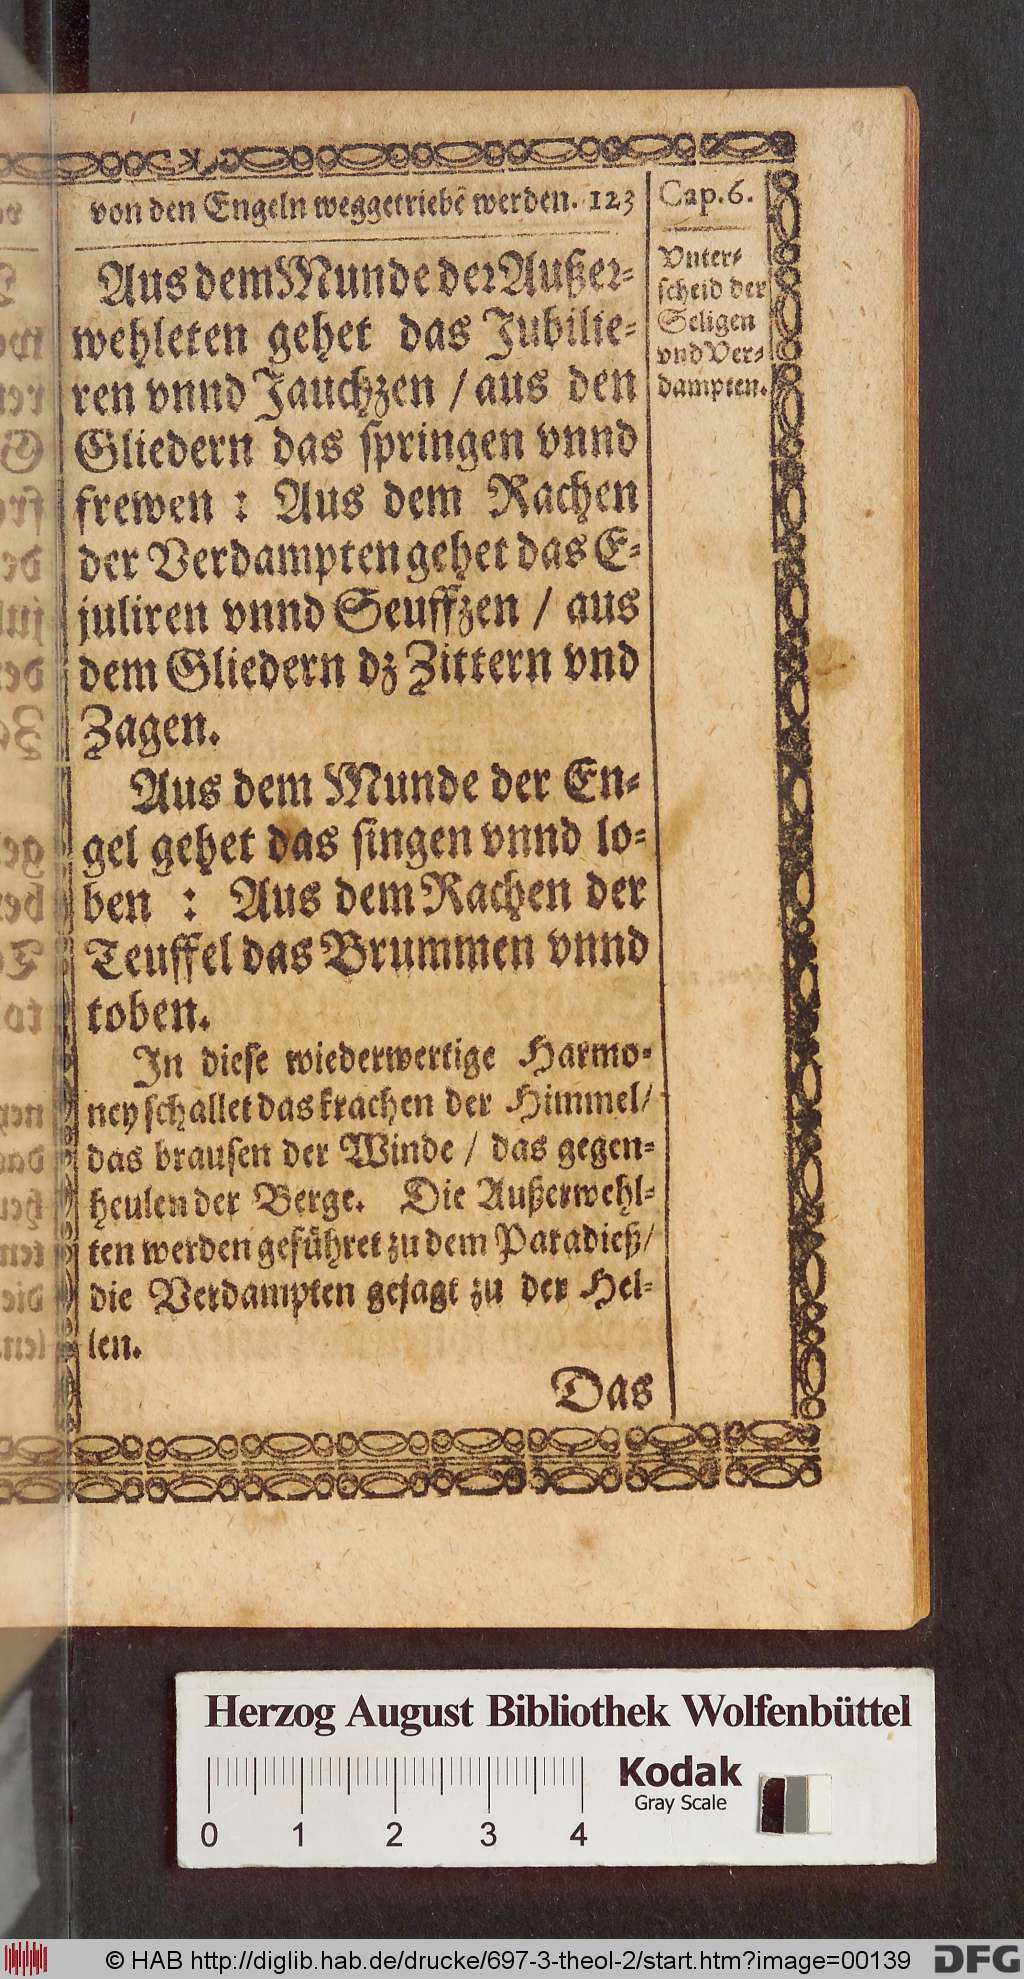 von den Engeln weggetriebẽ werden. 123
Cap. 6.
Vnter-
scheid der
Seligen
vnd Ver-
dampten.
Aus dem Munde der Außer-
wehleten gehet das Jubilie-
ren vnnd Jauchzen / aus den
Gliedern das springen vnnd
frewen : Aus dem Rachen
der Verdampten gehet das E-
juliren vnnd Seuffzen / aus
dem Gliedern dz Zittern vnd
Zagen.
Aus dem Munde der En-
gel gehet das singen vnnd lo-
ben : Aus dem Rachen der
Teuffel das Brummen vnnd
toben.
In diese wiederwertige Harmo-
ney schallet das krachen der Himmel/
das brausen der Winde / das gegen-
heulen der Berge. Die Außerwehl-
ten werden geführet zu dem Paradieß/
die Verdampten gejagt zu der Hel-
len.
Das
Herzog August Bibliothek Wolfenbüttel
Kodak
Gray Scale
0 1 2 3 4
© HAB http://diglib.hab.de/drucke/697-3-theol-2/start.htm?image=00139
DFG